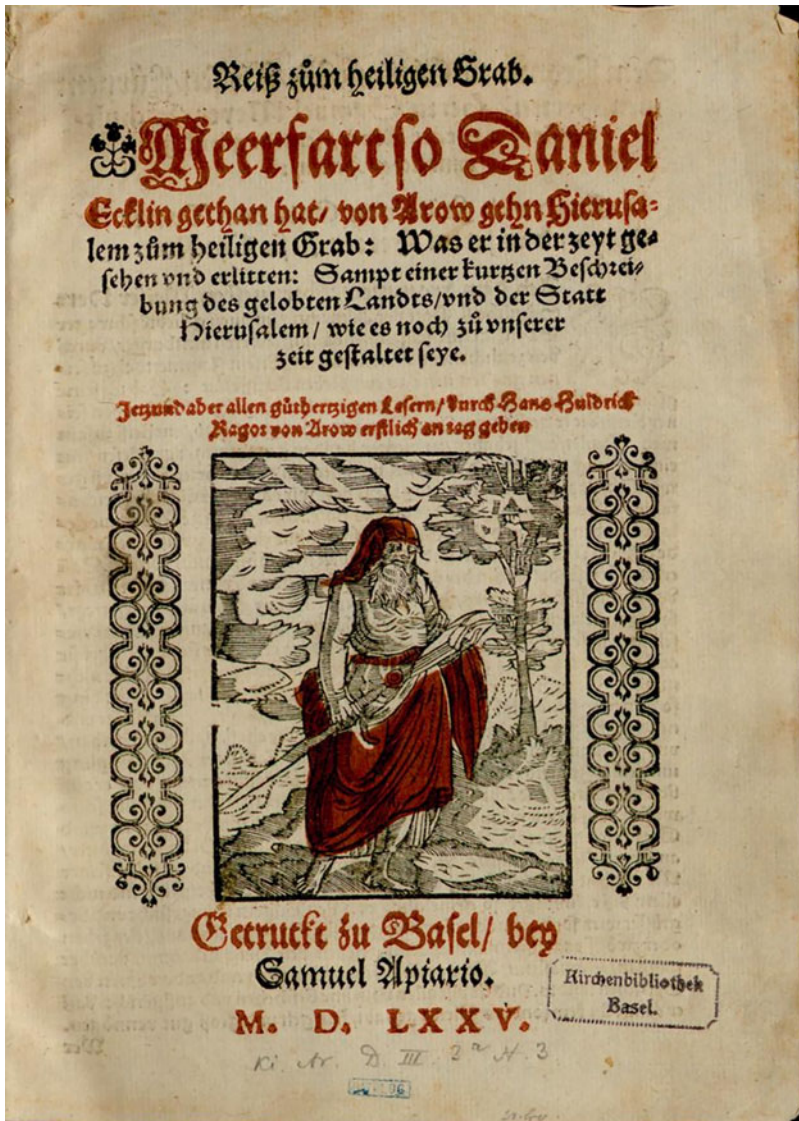 Reiß zům heiligen Grab.
Meerfart so Daniel
Ecklin gethan hat/ von Arow gehn Hierusa⸗
lem zům heiligen Grab: Was er in der zeyt ge⸗
sehen vnd erlitten: Sampt einer kurtzen Beschrei⸗
bung des gelobten Landts/vnd der Statt
Hierusalem/ wie es noch zů vnserer
zeit gestaltet seye.
Jetzund aber allen gůthertzigen Lesern/ durch Hans Huldrich
Ragor von Arow erstlich an tag geben
Getruckt zu Basel/ bey
Samuel Apiario.
M. D. LXXV.
Kirchenbibliothek
Basel.
Ki. Ar. D III. 3